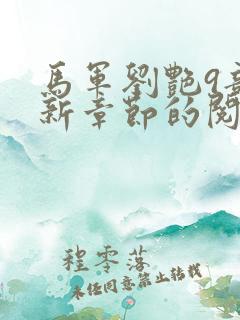 馬軍劉艷9章
新章節的閱
程零落
未經同意禁止轉載